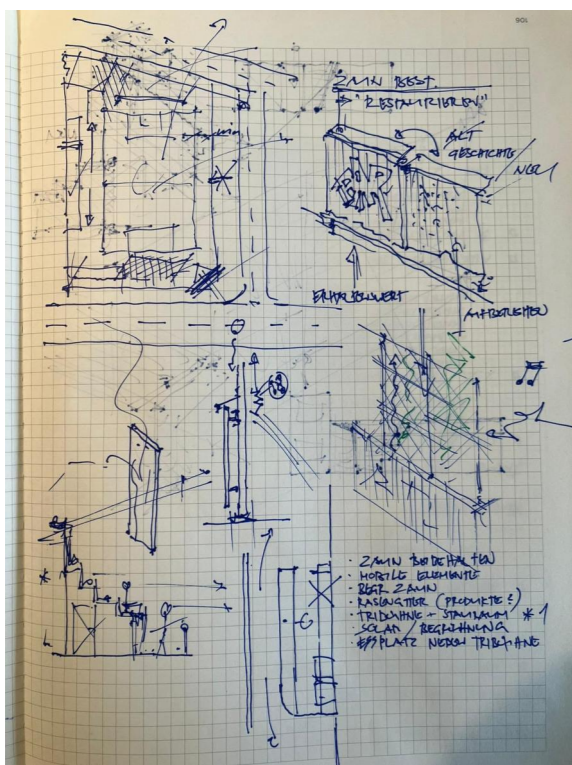 106
ZAUN BEST.
"RESTAURIEREN"
ALT
GESCHICHTE
NEU
ERHALTENSWERT
AUFBEREITEN
· ZAUN BEIBEHALTEN
· MOBILE ELEMENTE
· BEGR. ZAUN
· RASENGITTER (PRODUKTE?)
· TRIBÜHNE + STAURAUM *1
SOLAR / BEGRÜHNUNG
· ESSPLATZ NEBEN TRIBÜHNE